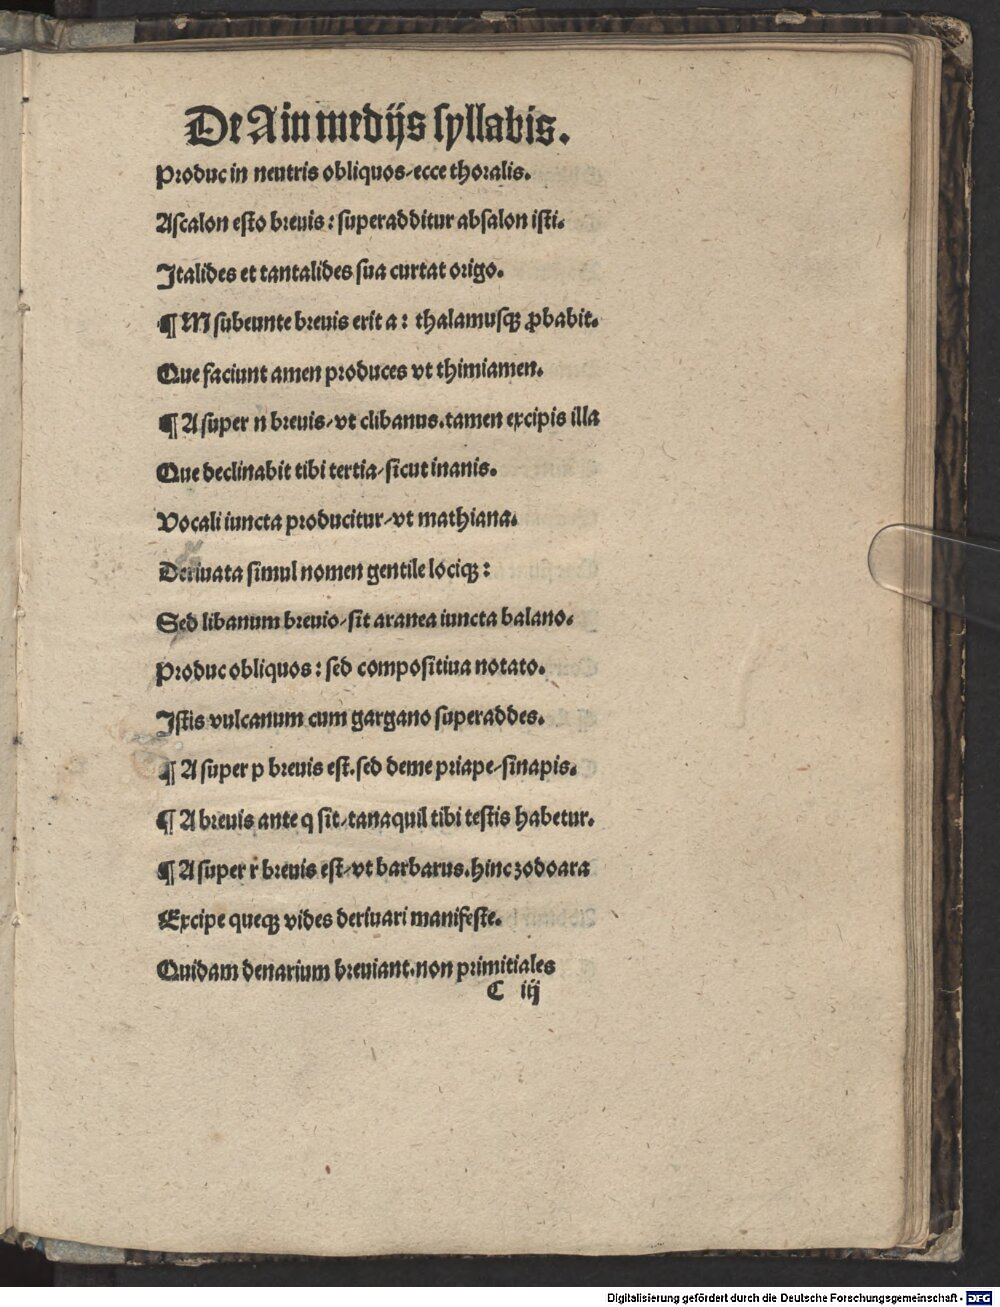 De A in medijs syllabis.
Produc in neutris obliquos/ecce thoralis.
Ascalon esto breuis: superadditur absalon isti.
Italides et tantalides sua curtat origo.
¶ M subeunte breuis erit a: thalamusqꝫ ꝓbabit.
Que faciunt amen produces vt thimiamen.
¶ A super n breuis/vt clibanus.tamen excipis illa
Que declinabit tibi tertia/sicut inanis.
Vocali iuncta producitur/vt mathiana.
Deriuata simul nomen gentile lociqꝫ:
Sed libanum breuio/sit aranea iuncta balano.
Produc obliquos: sed compositiua notato.
Istis vulcanum cum gargano superaddes.
¶ A super p breuis est.sed deme priape/sinapis.
¶ A breuis ante q sit/tanaquil tibi testis habetur.
¶ A super r breuis est/vt barbarus.hinc zodoara
Excipe queqꝫ vides deriuari manifeste.
Quidam denarium breuiant.non primitiales
C iij
Digitalisierung gefördert durch die Deutsche Forschungsgemeinschaft - DFG